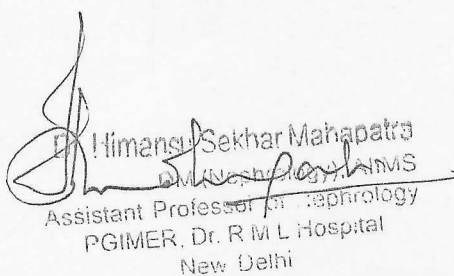 Dr Himansu Sekhar Mahapatra
DM (Nephrology) AIIMS
Assistant Professor of Nephrology
PGIMER, Dr. R M L Hospital
New Delhi